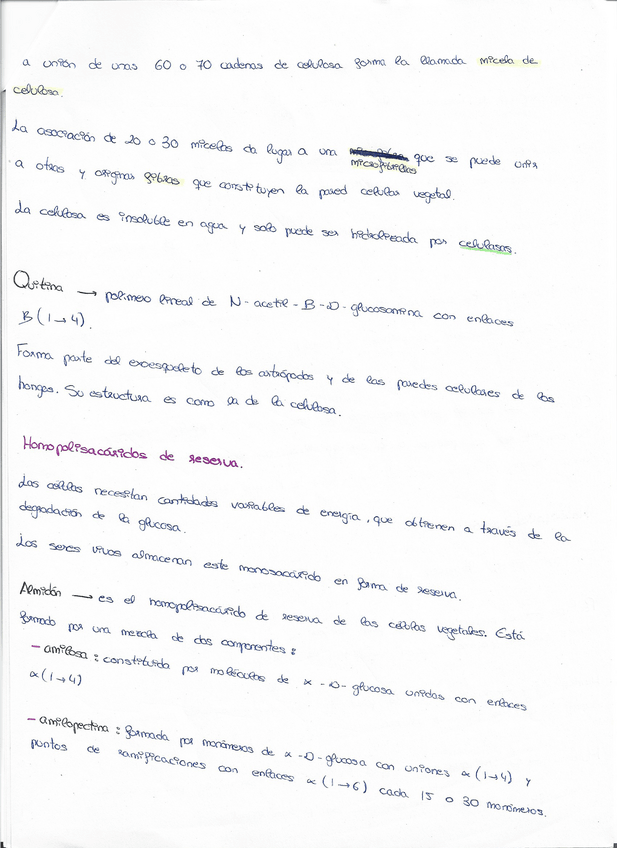 a unión de unas 60 o 70 cadenas de celulosa forma la llamada micela de
celulosa.
La asociación de 20 o 30 micelas da lugar a una microfibrillas que se puede unir
a otras y originar fibras que constituyen la pared celular vegetal.
La celulosa es insoluble en agua y solo puede ser hidrolizada por celulasas.
Quitina → polímero lineal de N-acetil-B-D-glucosamina con enlaces
B(1→4).
Forma parte del exoesqueleto de los artrópodos y de las paredes celulares de los
hongos. Su estructura es como la de la celulosa.
Homopolisacáridos de reserva.
Las células necesitan cantidades variables de energía, que obtienen a través de la
degradación de la glucosa.
Los seres vivos almacenan este monosacárido en forma de reserva.
Almidón → es el homopolisacárido de reserva de las células vegetales. Está
formado por una mezcla de dos componentes:
- amilosa: constituida por moléculas de α-D-glucosa unidas con enlaces
α(1→4)
- amilopectina: formada por monómeros de α-D-glucosa con uniones α(1→4) y
puntos de ramificaciones con enlaces α(1→6) cada 15 o 30 monómeros.